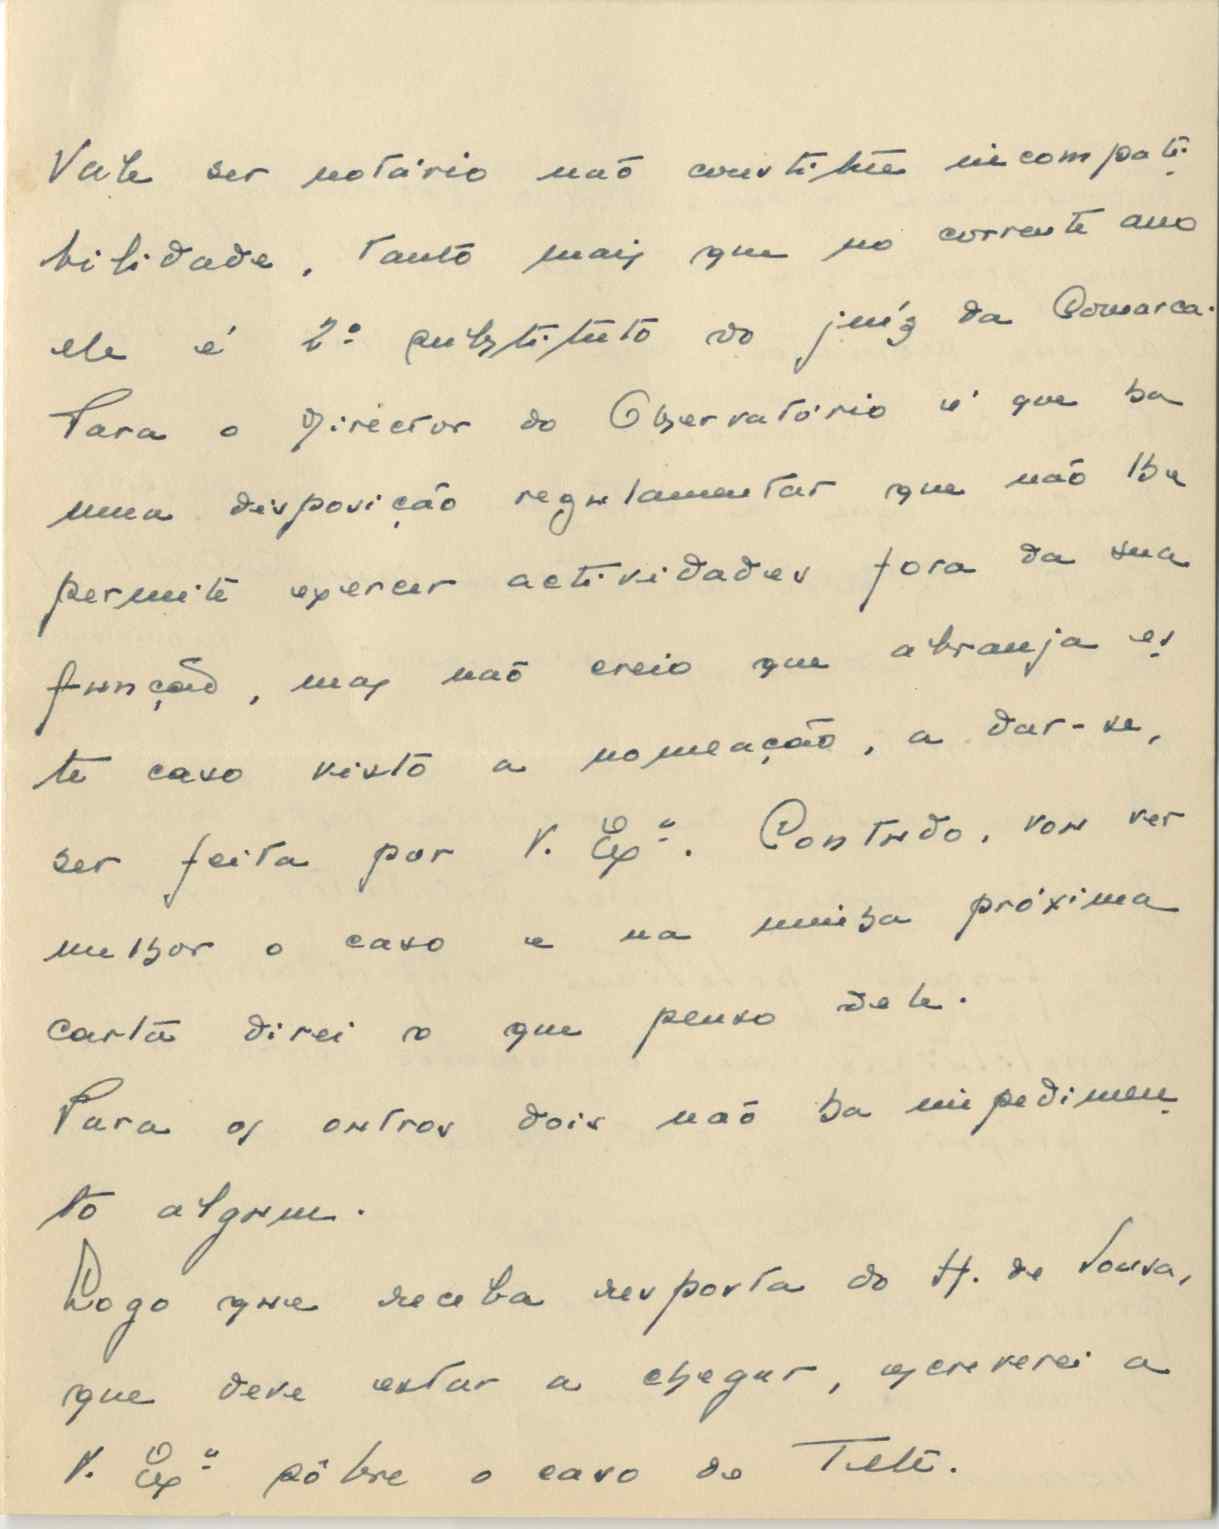 Vale ser notário não constitue incompati-
bilidade, tanto mais que no corrente ano
ele é 2º substituto do juíz da Comarca.
Para o Director do Observatório é que ha
uma disposição regulamentar que não lhe
permite exercer actividades fora da sua
função, mas não creio que abranja es-
te caso visto a nomeação, a dar-se,
ser feita por V. Exª. Contudo, vou ver
melhor o caso e na minha próxima
carta direi o que penso dele.
Para os outros dois não ha impedimen-
to algum.
Logo que receba resposta do H. de Sousa,
que deve estar a chegar, escreverei a
V. Exª sôbre o caso de Tete.